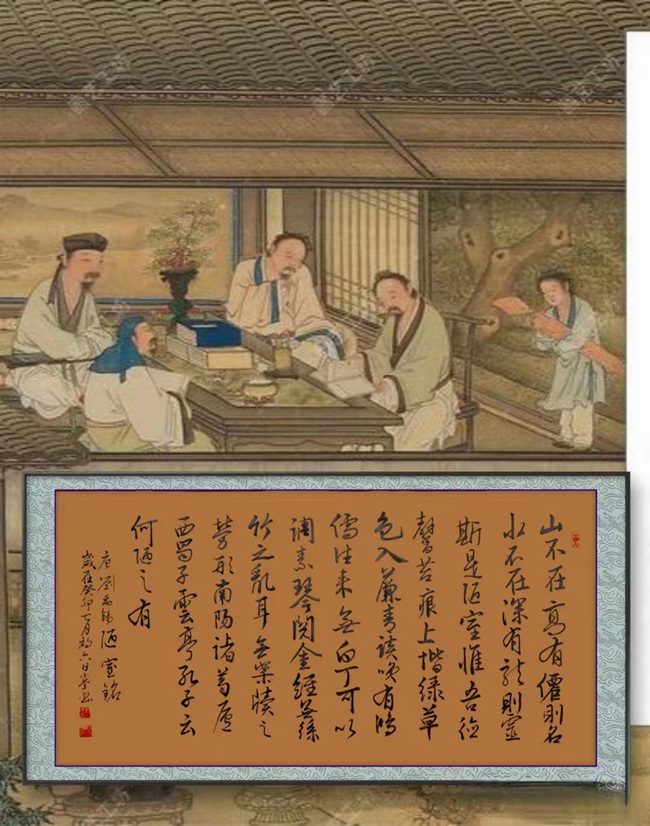 山不在高有僊則名
水不在深有龍則靈
斯是陋室惟吾德
馨苔痕上堦綠草
色入簾青談笑有鴻
儒往來無白丁可以
調素琴閱金經無絲
竹之亂耳無案牘之
勞形南陽諸葛廬
西蜀子雲亭孔子云
何陋之有
唐劉禹錫陋室銘
歲在癸卯七月初六日